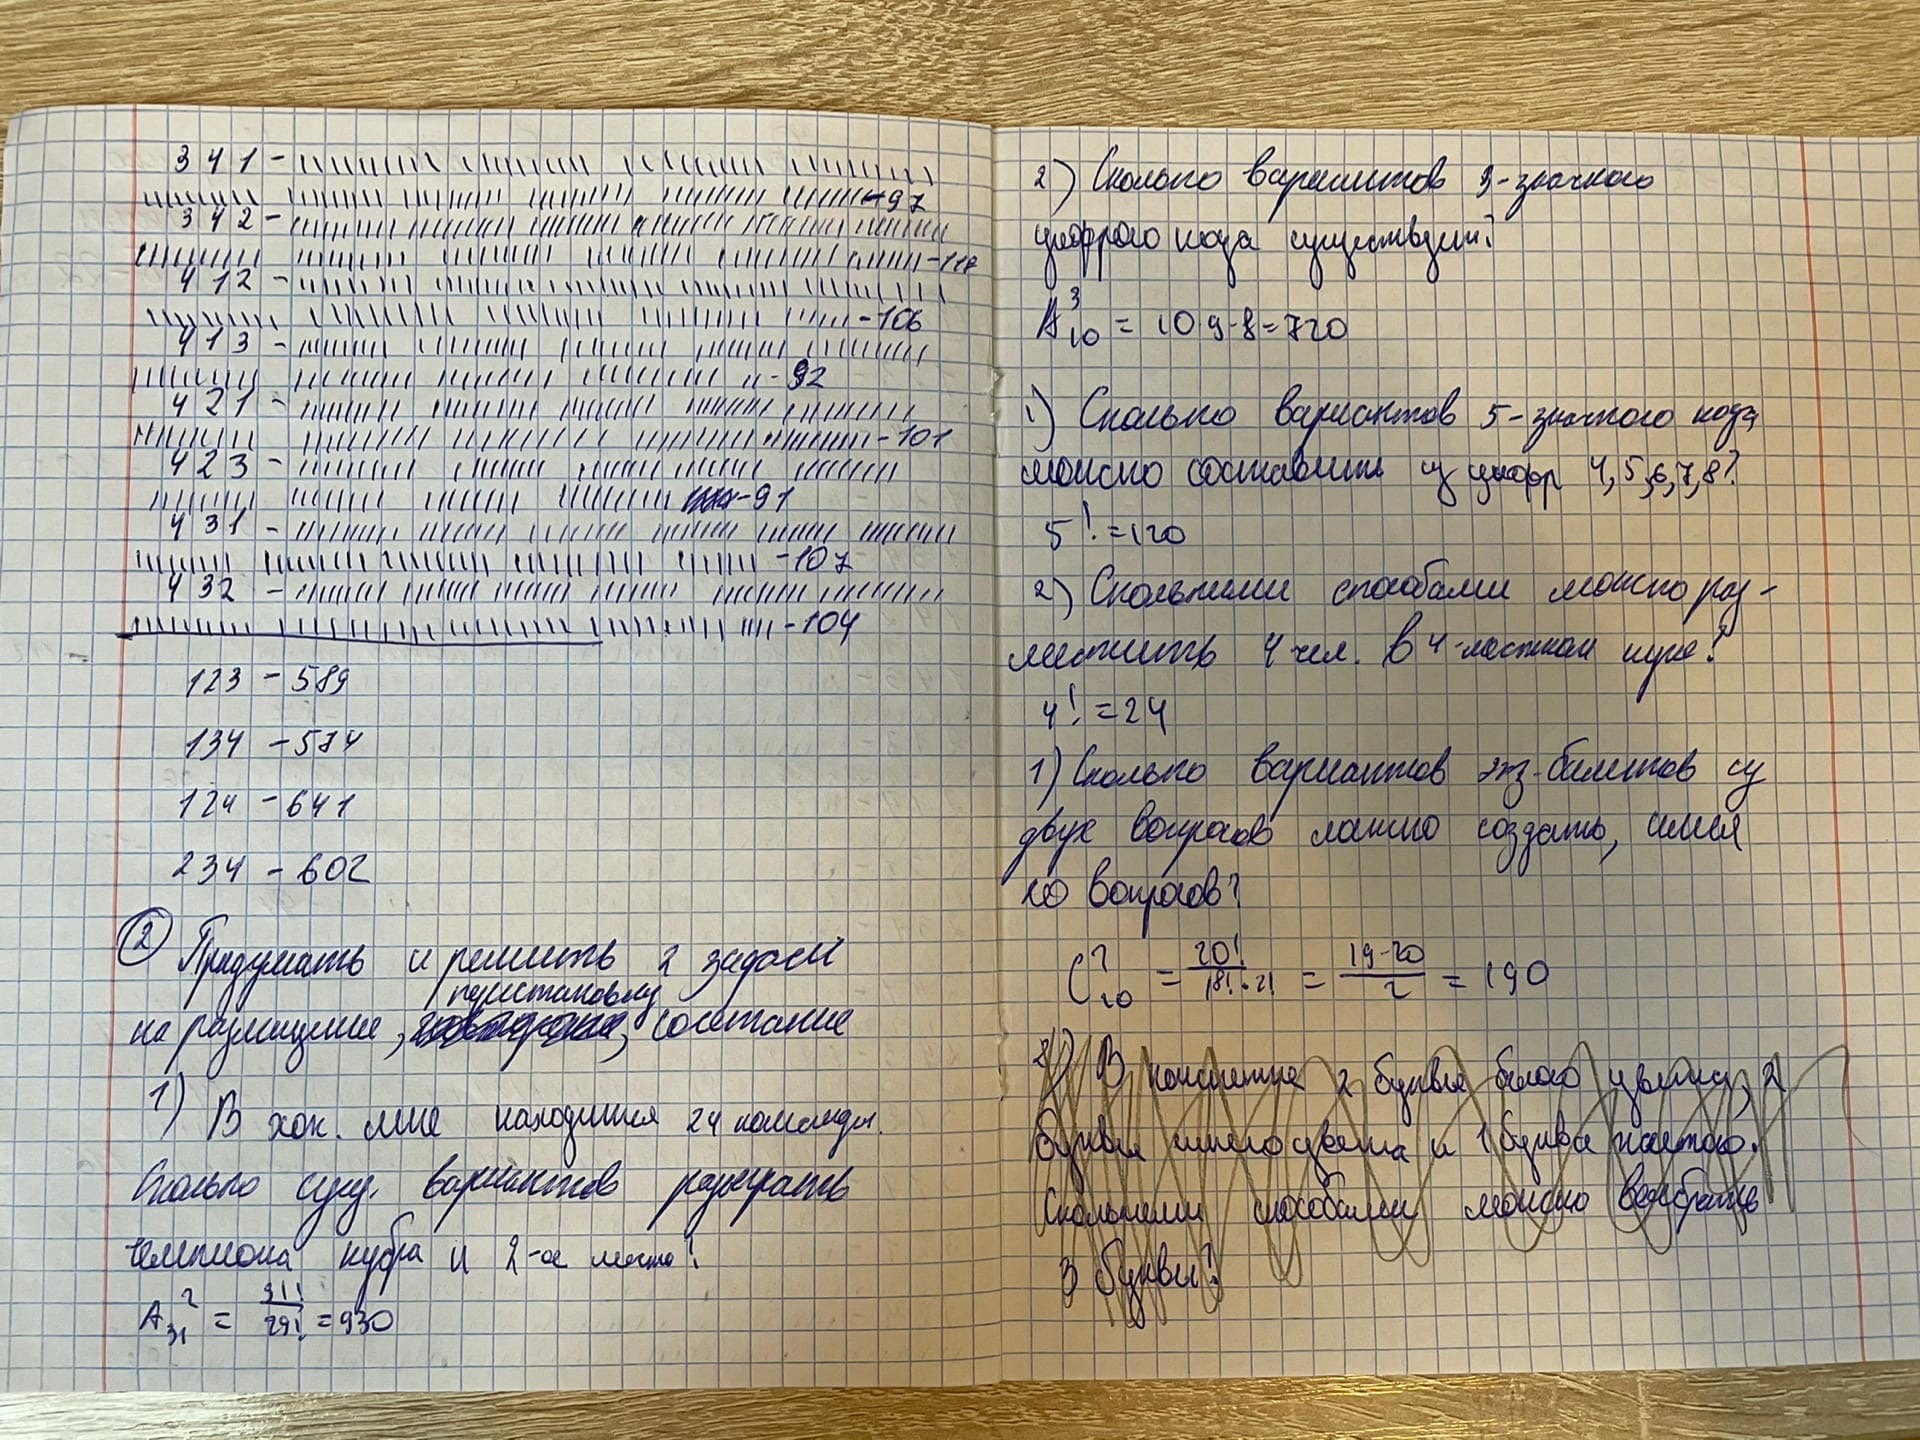 341 -
- 97
342 -
412 -
- 106
413 -
- 92
421 -
- 101
423 -
- 91
431 -
- 107
432 -
- 104
123 - 589
134 - 574
124 - 641
234 - 602
② Придумать и решить 2 задачи
перестановку
на размещение, , сочетание
1) В хок. лиге находится 24 команды.
Сколько сущ. вариантов разыграть
чемпиона кубра и 2-ое место?
A²₃₁ = 31!/29! = 930
2) Сколько вариантов 3-значного
цифрого кода существует?
A³₁₀ = 10·9·8=720
1) Сколько вариантов 5-значного кода
можно составить из цифр 4,5,6,7,8?
5! =120
2) Сколькими способами можно раз-
местить 4 чел. в 4-местном купе?
4! =24
1) Сколько вариантов экз-билетов из
двух вопросов можно создать, имея
20 вопросов?
C²₂₀ = 20!/18!·2! = 19·20/2 = 190
2) В конспекте 2 буквы белого цвета, 2
буквы синего цвета и 1 буква желтого.
Сколькими способами можно выбрать
3 буквы?